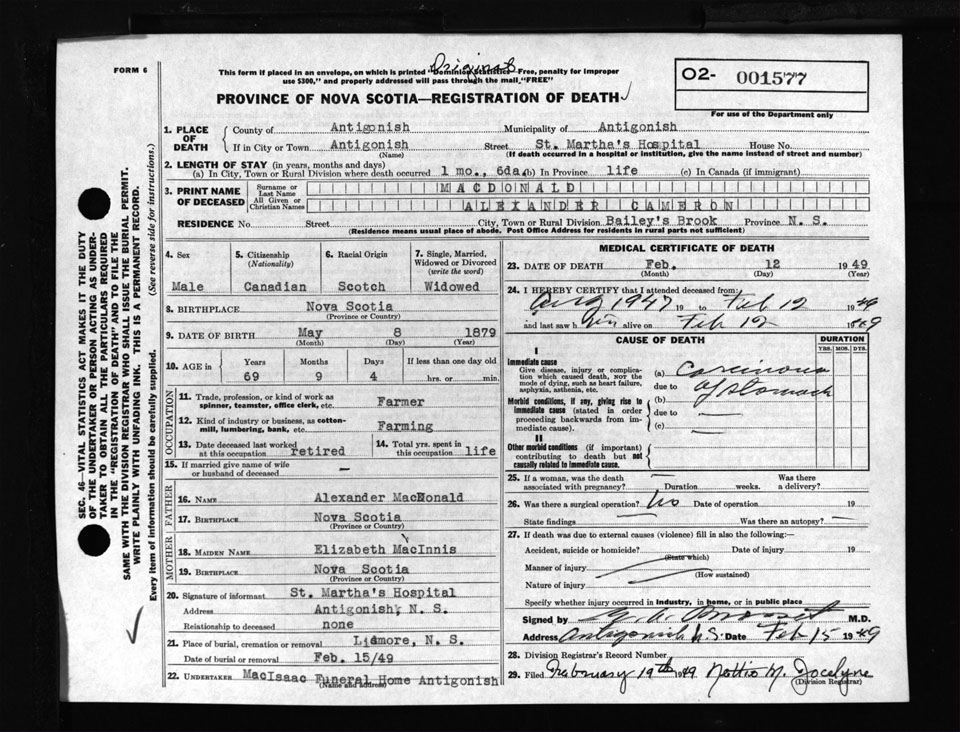 Original
FORM 6
This form if placed in an envelope, on which is printed "Dominion Statistics—Free, penalty for improper
use $300," and properly addressed will pass through the mail "FREE"
O2- 001577
For use of the Department only
PROVINCE OF NOVA SCOTIA—REGISTRATION OF DEATH
1. PLACE OF DEATH
County of Antigonish Municipality of Antigonish
If in City or Town Antigonish Street St. Martha's Hospital House No.
(Name) (If death occurred in a hospital or institution, give the name instead of street and number)
2. LENGTH OF STAY (in years, months and days)
(a) In City, Town or Rural Division where death occurred 1 mo., 6da. (b) In Province life (c) In Canada (if immigrant)
3. PRINT NAME OF DECEASED
Surname or Last Name MACDONALD
All Given or Christian Names ALEXANDER CAMERON
RESIDENCE No. Street City, Town or Rural Division Bailey's Brook Province N. S.
(Residence means usual place of abode. Post Office Address for residents in rural parts not sufficient)
4. Sex
Male
5. Citizenship (Nationality)
Canadian
6. Racial Origin
Scotch
7. Single, Married, Widowed or Divorced (write the word)
Widowed
8. BIRTHPLACE Nova Scotia
(Province or Country)
9. DATE OF BIRTH May 8 1879
(Month) (Day) (Year)
10. AGE in
Years Months Days If less than one day old
69 9 4 hrs. or min.
OCCUPATION
11. Trade, profession, or kind of work as spinner, teamster, office clerk, etc. Farmer
12. Kind of industry or business, as cotton-mill, lumbering, bank, etc. Farming
13. Date deceased last worked at this occupation retired
14. Total yrs. spent in this occupation life
15. If married give name of wife or husband of deceased —
FATHER
16. NAME Alexander MacDonald
17. BIRTHPLACE Nova Scotia
(Province or Country)
MOTHER
18. MAIDEN NAME Elizabeth MacInnis
19. BIRTHPLACE Nova Scotia
(Province or Country)
20. Signature of informant St. Martha's Hospital
Address Antigonish, N. S.
Relationship to deceased none
21. Place of burial, cremation or removal Lismore, N. S.
Date of burial or removal Feb. 15/49
22. UNDERTAKER MacIsaac Funeral Home Antigonish
(Name and address)
MEDICAL CERTIFICATE OF DEATH
23. DATE OF DEATH Feb. 12 1949
(Month) (Day) (Year)
24. I HEREBY CERTIFY that I attended deceased from:
Aug 1947 19 to Feb 12 1949
and last saw him alive on Feb 12 1949
CAUSE OF DEATH
DURATION
YRS. MOS. DYS.
I
Immediate cause
Give disease, injury or complication which caused death, NOT the mode of dying, such as heart failure, asphyxia, asthenia, etc.
(a) Carcinoma
due to of stomach
Morbid conditions, if any, giving rise to immediate cause (stated in order proceeding backwards from immediate cause).
(b)
due to
(c)
II
Other morbid conditions (if important) contributing to death but not causally related to immediate cause.
25. If a woman, was the death associated with pregnancy? Duration weeks. Was there a delivery?
26. Was there a surgical operation? No Date of operation 19
State findings Was there an autopsy?
27. If death was due to external causes (violence) fill in also the following:—
Accident, suicide or homicide? Date of injury 19
(State which)
Manner of injury
(How sustained)
Nature of injury
Specify whether injury occurred in industry, in home, or in public place
Signed by M.D.
Address Antigonish N.S. Date Feb 15 1949
28. Division Registrar's Record Number
29. Filed February 19th 1949 Nottie M. Jocelyne
(Division Registrar)
SEC. 46—VITAL STATISTICS ACT MAKES IT THE DUTY
OF THE UNDERTAKER OR PERSON ACTING AS UNDER-
TAKER TO OBTAIN ALL THE PARTICULARS REQUIRED
IN THE "REGISTRATION OF DEATH" AND TO FILE THE
SAME WITH THE DIVISION REGISTRAR WHO SHALL ISSUE THE BURIAL PERMIT.
WRITE PLAINLY WITH UNFADING INK. THIS IS A PERMANENT RECORD.
Every item of information should be carefully supplied. (See reverse side for instructions.)